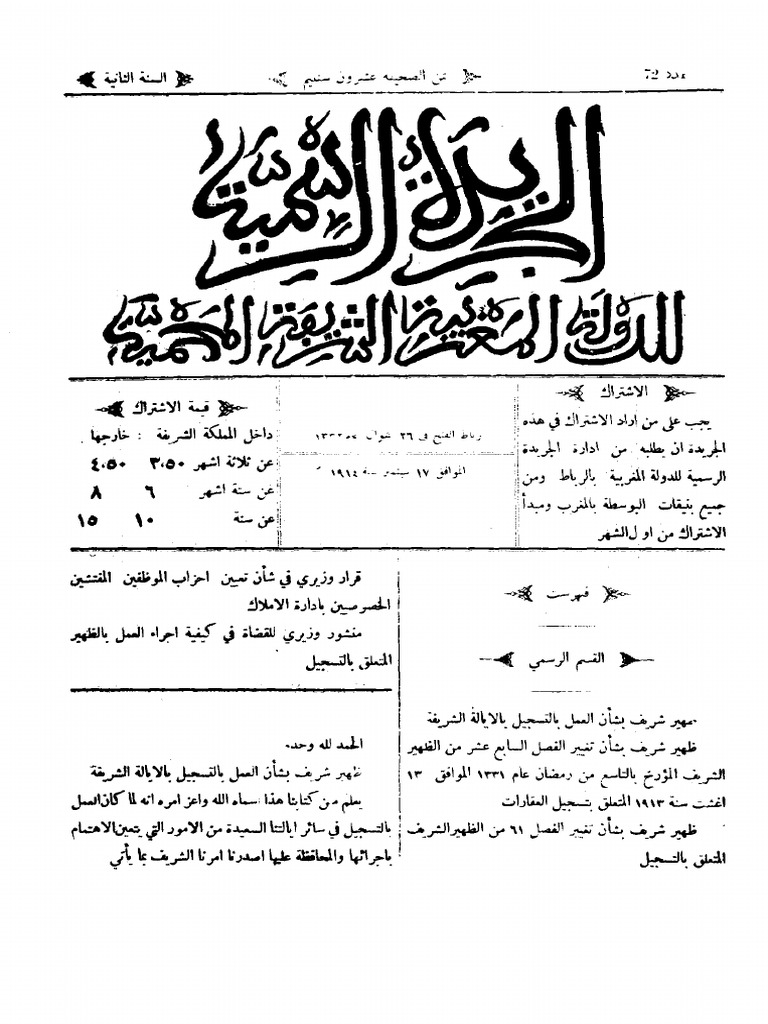 عدد 72
ثمن الصحيفة عشرون سنتيم
السنة الثانية
الجريدة الرسمية
للدولة المغربية الشريفة المحمية
الاشتراك
يجب على من أراد الاشتراك في هذه
الجريدة ان يطلبه من ادارة الجريدة
الرسمية للدولة المغربية بالرباط ومن
جميع بنيقات البوسطة بالمغرب ومبدأ
الاشتراك من اول الشهر
رباط الفتح في ٢٦ شوال
الموافق ١٧ سبتمبر سنة ١٩١٤
قيمة الاشتراك
داخل المملكة الشريفة : خارجها
عن ثلاثة اشهر ٣،٥٠ ٤،٥٠
عن ستة اشهر ٦ ٨
عن سنة ١٠ ١٥
فهرست
القسم الرسمي
ظهير شريف بشأن العمل بالتسجيل بالايالة الشريفة
ظهير شريف بشأن تغيير الفصل السابع عشر من الظهير
الشريف المؤرخ بالتاسع من رمضان عام ١٣٣١ الموافق ١٣
اغشت سنة ١٩١٣ المتعلق بتسجيل العقارات
ظهير شريف بشأن تغيير الفصل ٦١ من الظهير الشريف
المتعلق بالتسجيل
قرار وزيري في شأن تعيين احزاب الموظفين المفتشين
الخصوصيين بادارة الاملاك
منشور وزيري للقضاة في كيفية اجراء العمل بالظهير
المتعلق بالتسجيل
الحمد لله وحده
ظهير شريف بشأن العمل بالتسجيل بالايالة الشريفة
يعلم من كتابنا هذا اسماه الله واعز امره انه لما كان العمل
بالتسجيل في سائر ايالتنا السعيدة من الامور التي يتعين الاهتمام
باجرائها والمحافظة عليها اصدرنا امرنا الشريف بما يأتي